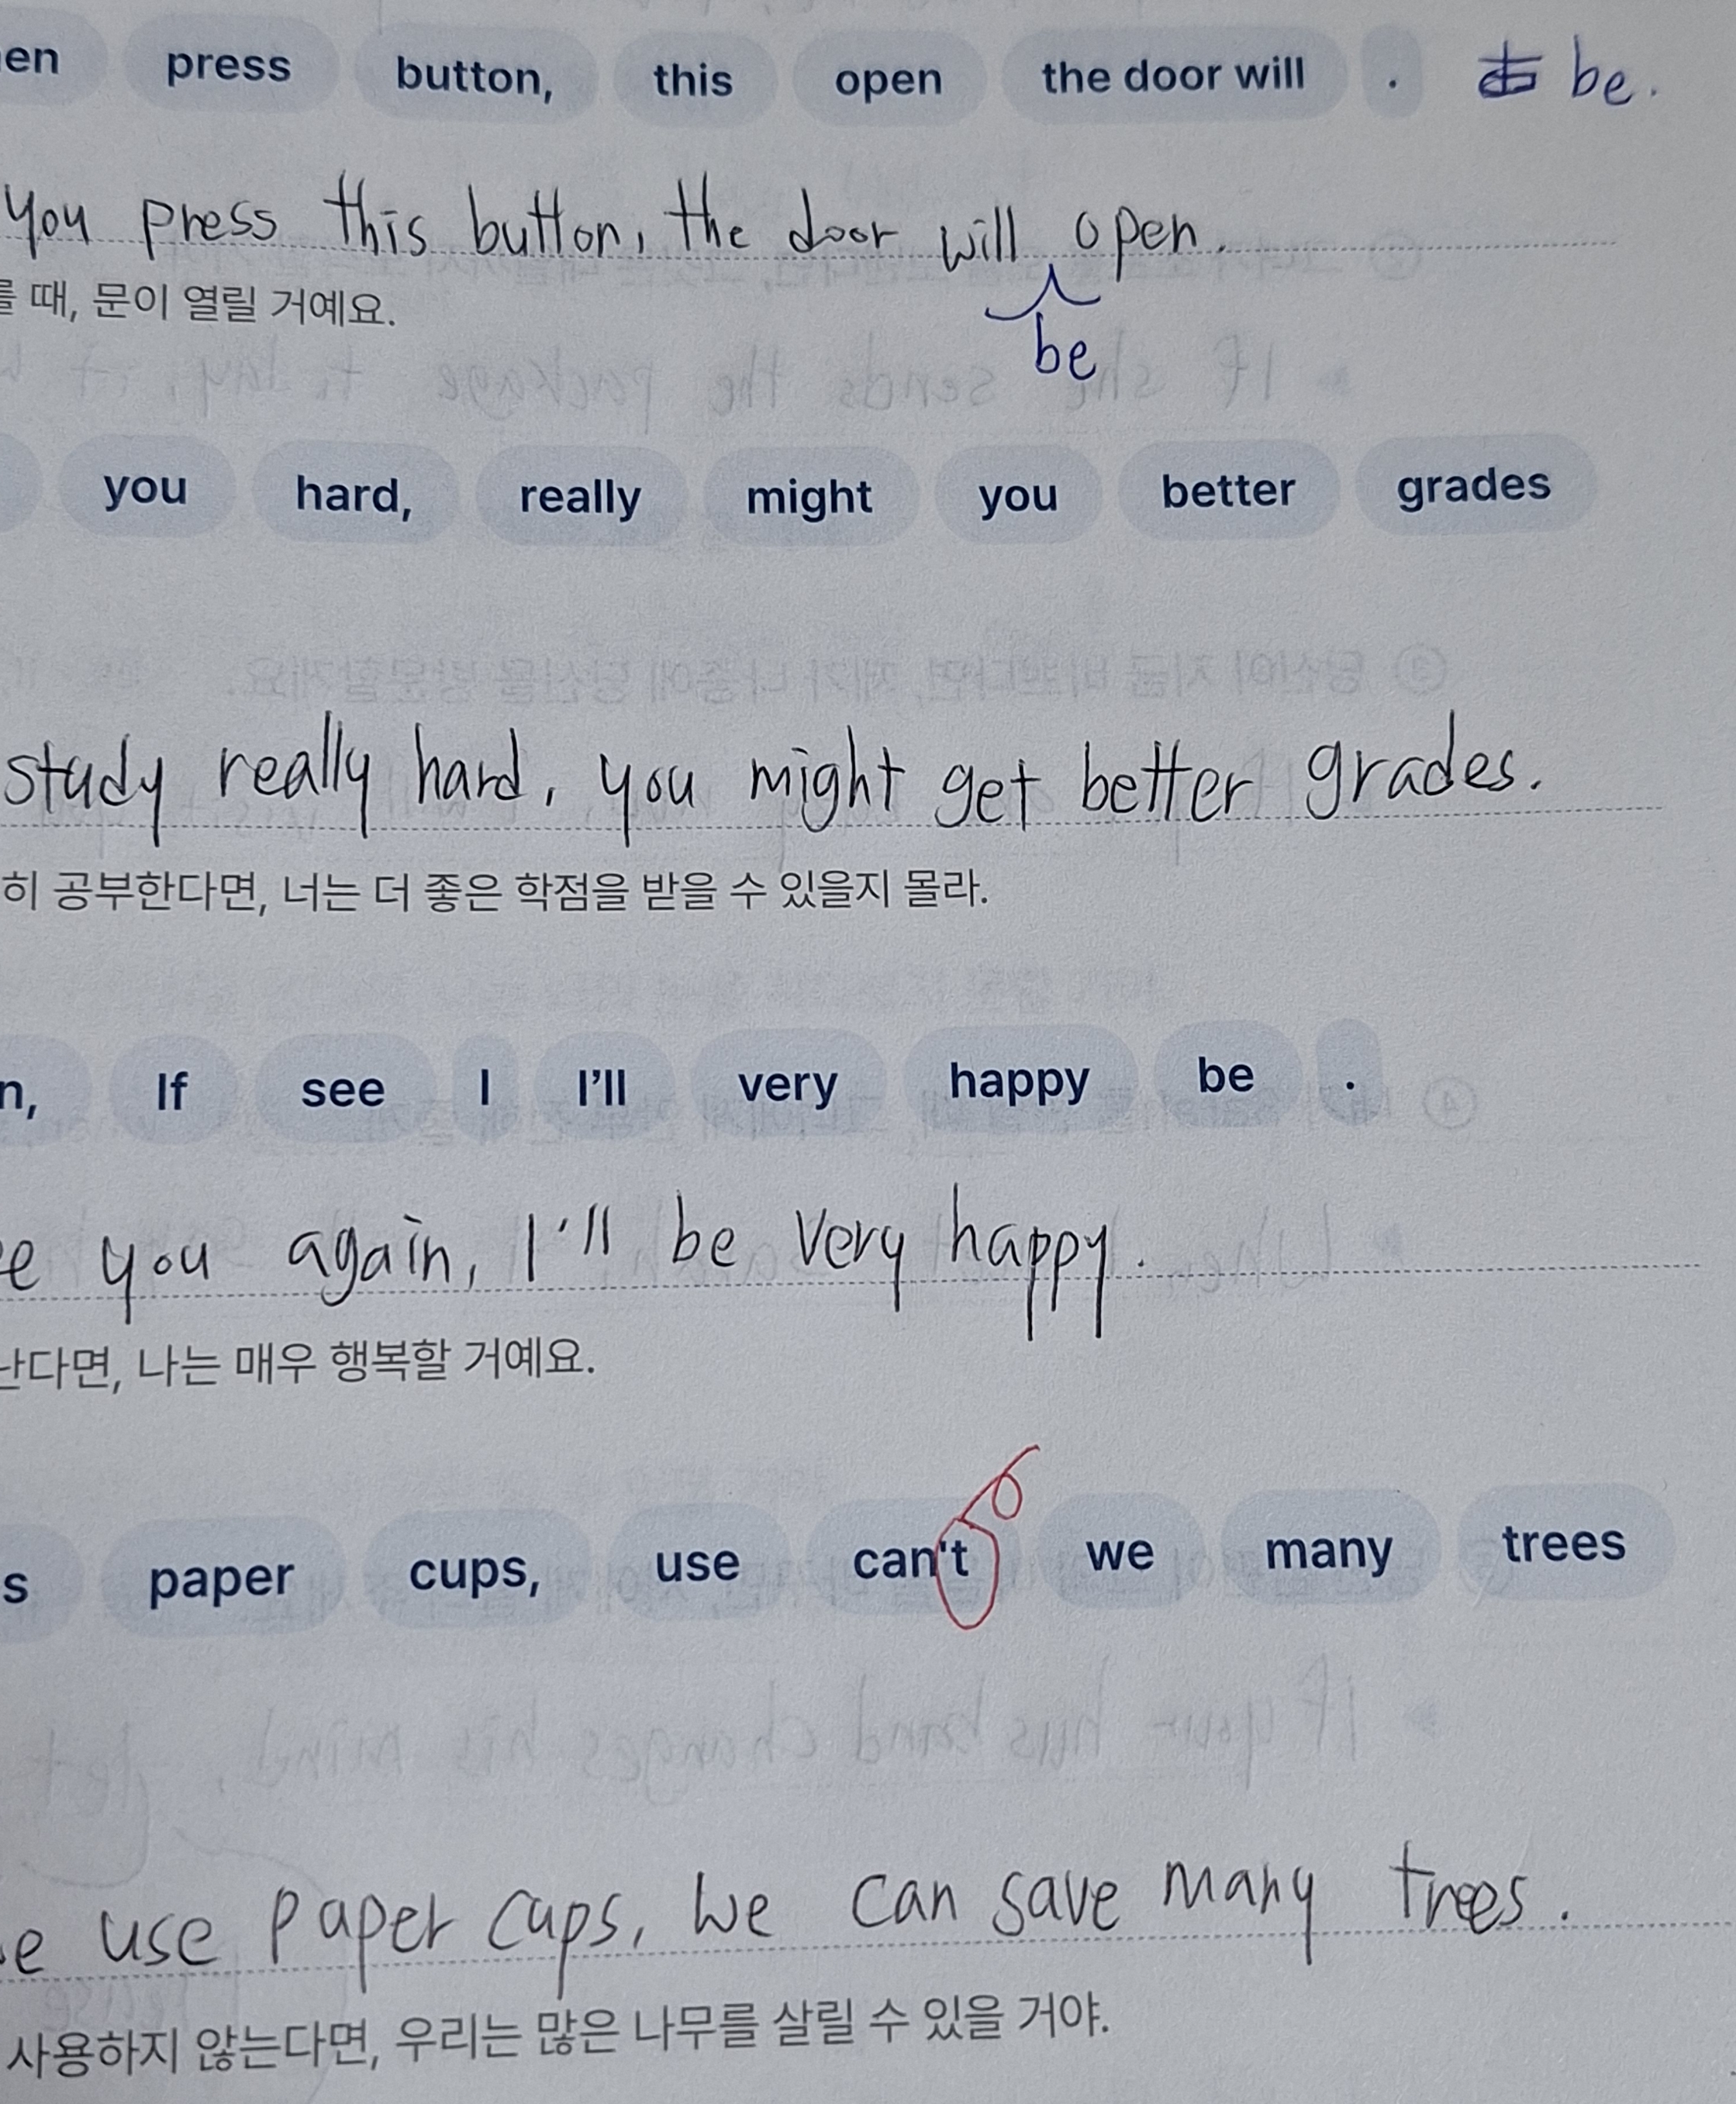 en press button, this open the door will . be.
you press this button, the door will open.
be
를 때, 문이 열릴 거예요.
you hard, really might you better grades
study really hard, you might get better grades.
히 공부한다면, 너는 더 좋은 학점을 받을 수 있을지 몰라.
n, If see I I'll very happy be .
e you again, I'll be very happy.
난다면, 나는 매우 행복할 거예요.
s paper cups, use can't we many trees
e use paper cups, we can save many trees.
사용하지 않는다면, 우리는 많은 나무를 살릴 수 있을 거야.